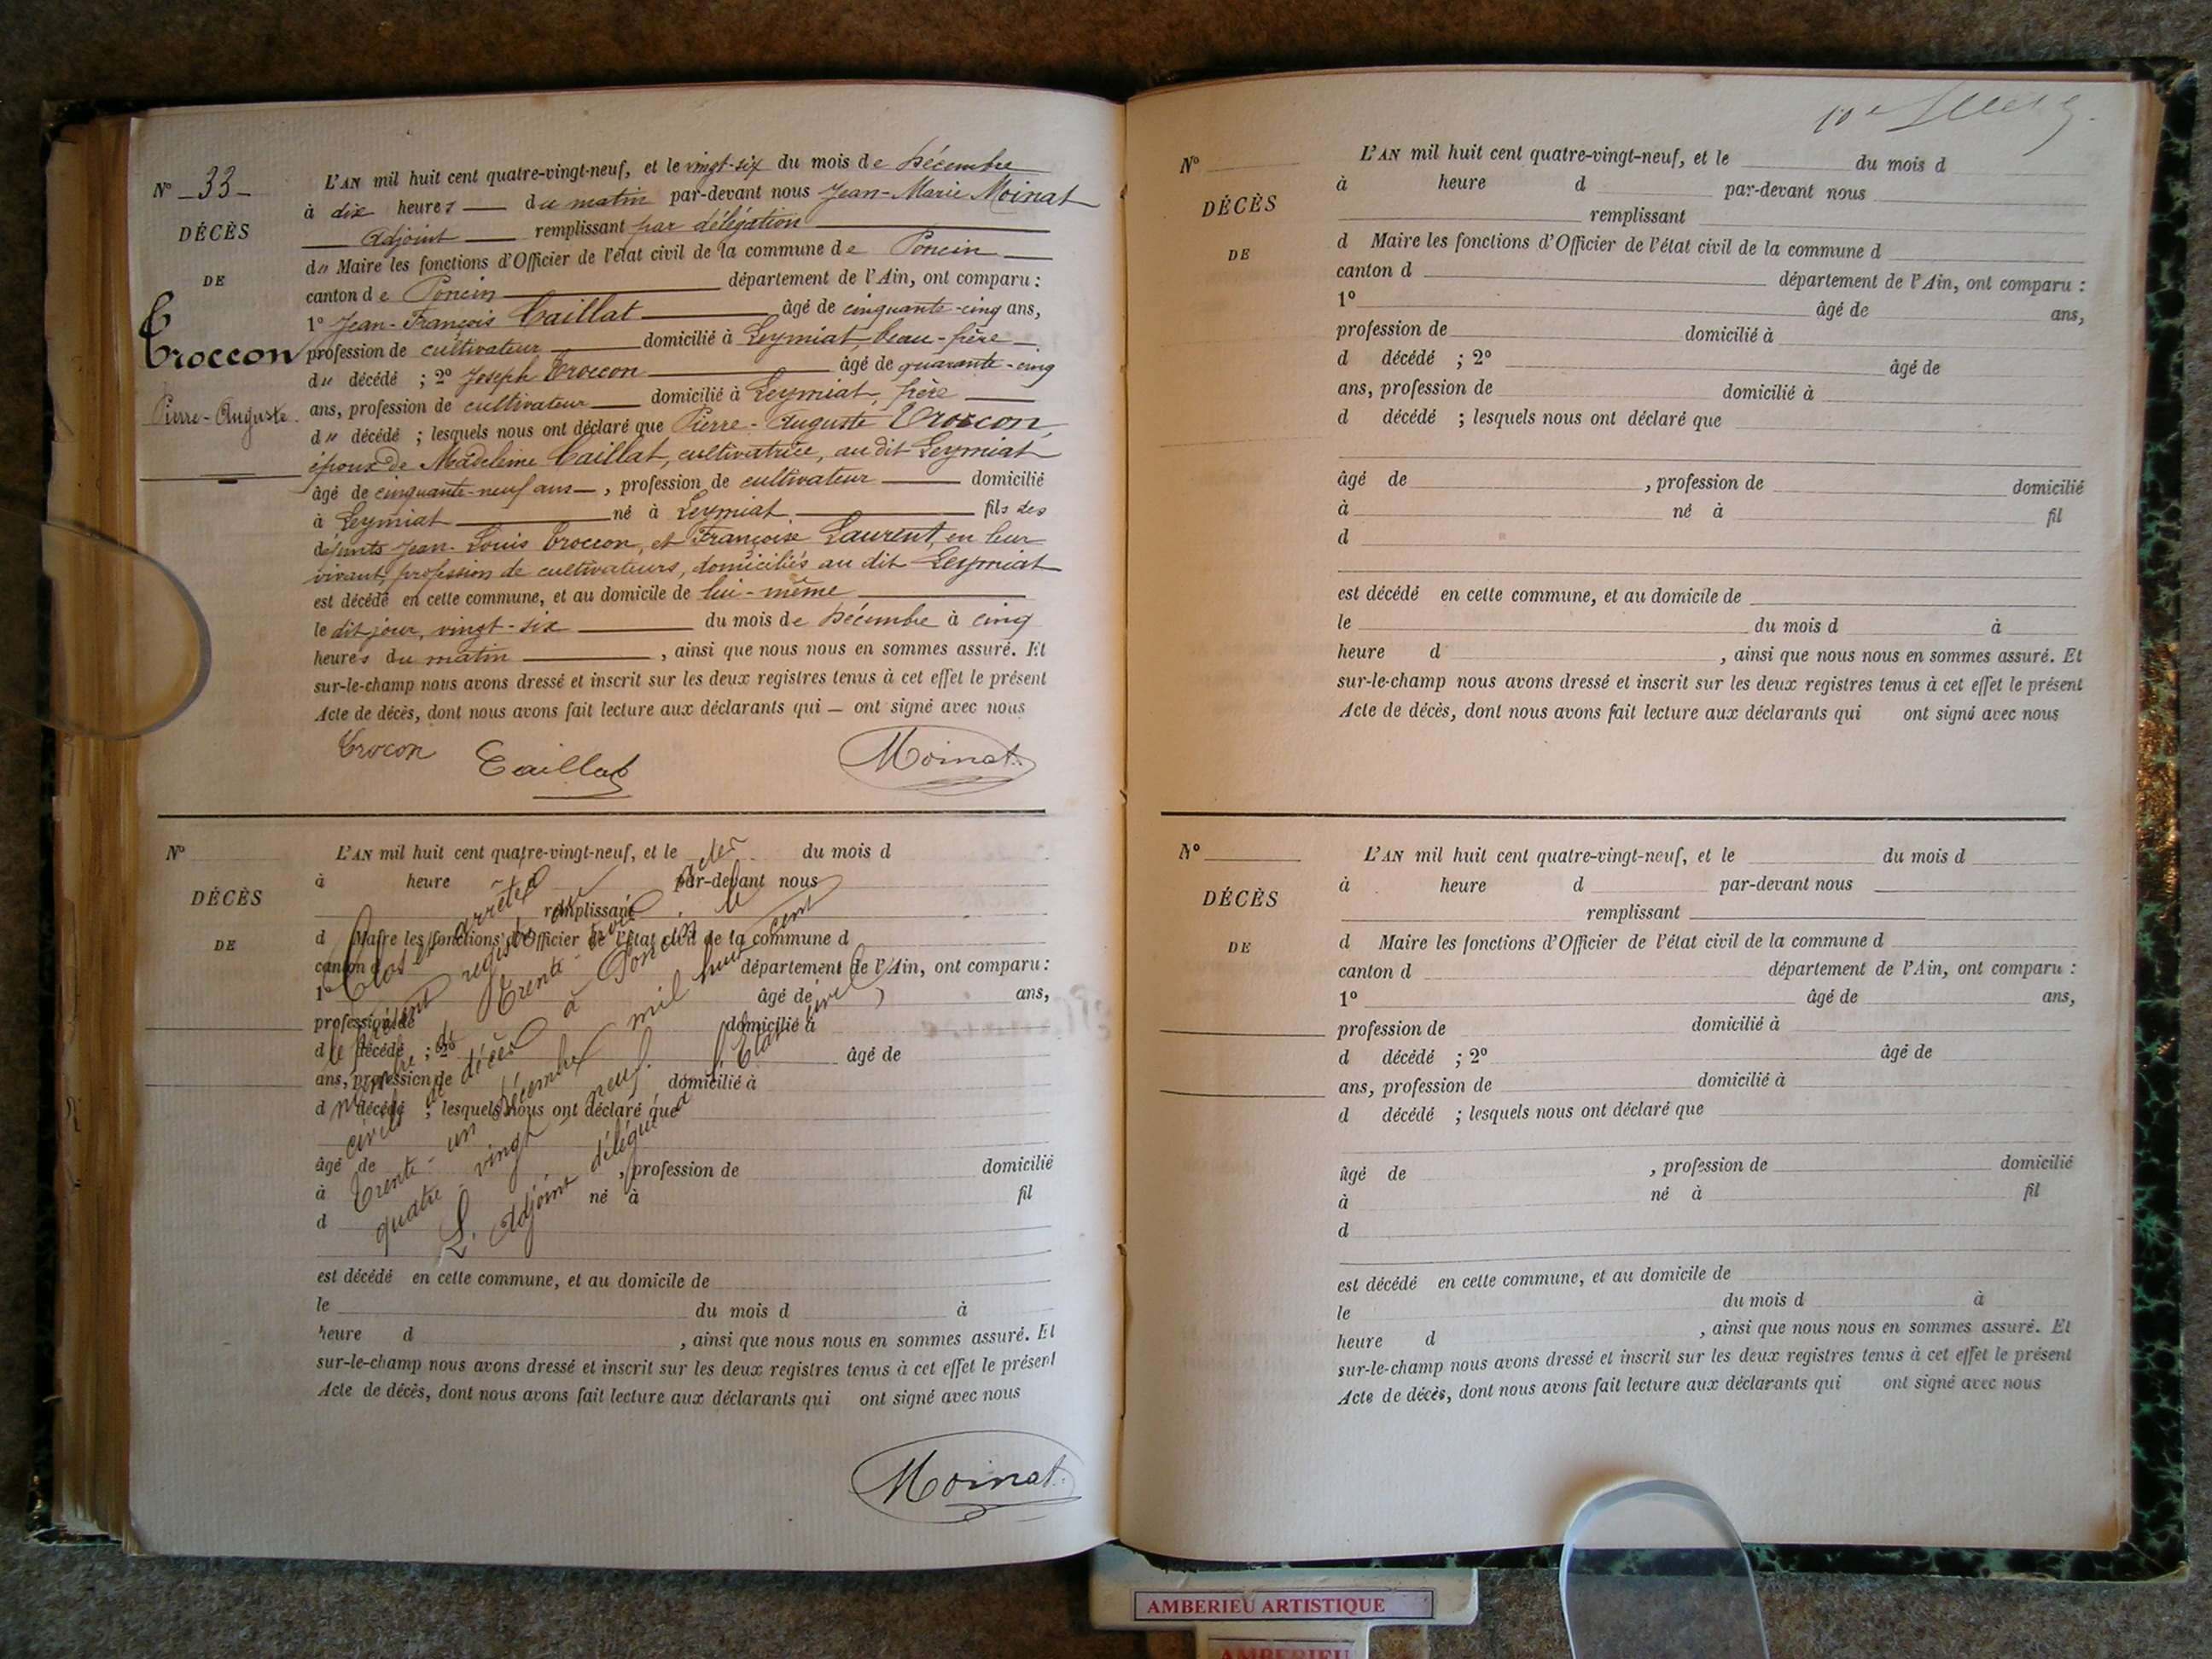 N° 33
DÉCÈS
DE
Troccon
Pierre-Auguste.
L'AN mil huit cent quatre-vingt-neuf, et le vingt-six du mois de Décembre
à dix heures du matin par-devant nous Jean-Marie Moinat
Adjoint remplissant par délégation
du Maire les fonctions d'Officier de l'état civil de la commune de Poncin
canton de Poncin département de l'Ain, ont comparu :
1° Jean-François Caillat âgé de cinquante-cinq ans,
profession de cultivateur domicilié à Leymiat, beau-frère
du décédé ; 2° Joseph Troccon âgé de quarante-cinq
ans, profession de cultivateur domicilié à Leymiat, frère
du décédé ; lesquels nous ont déclaré que Pierre-Auguste Troccon,
époux de Madeleine Caillat, cultivatrice, au dit Leymiat
âgé de cinquante-neuf ans, profession de cultivateur domicilié
à Leymiat né à Leymiat fils des
défunts Jean-Louis Troccon, et Françoise Laurent, en leur
vivant, profession de cultivateurs, domiciliés au dit Leymiat
est décédé en cette commune, et au domicile de lui-même
le dit jour, vingt-six du mois de Décembre à cinq
heures du matin, ainsi que nous nous en sommes assuré. Et
sur-le-champ nous avons dressé et inscrit sur les deux registres tenus à cet effet le présent
Acte de décès, dont nous avons fait lecture aux déclarants qui — ont signé avec nous
Trocon Caillat Moinat
N°
DÉCÈS
DE
L'AN mil huit cent quatre-vingt-neuf, et le du mois d
à heure d par-devant nous
remplissant
d Maire les fonctions d'Officier de l'état civil de la commune d
canton d département de l'Ain, ont comparu :
1° âgé de ans,
profession de domicilié à
d décédé ; 2° âgé de
ans, profession de domicilié à
d décédé ; lesquels nous ont déclaré que
âgé de , profession de domicilié
à né à fil
d
est décédé en cette commune, et au domicile de
le du mois d à
heure d , ainsi que nous nous en sommes assuré. Et
sur-le-champ nous avons dressé et inscrit sur les deux registres tenus à cet effet le présent
Acte de décès, dont nous avons fait lecture aux déclarants qui ont signé avec nous
Clos et arrêté
le présent registre
trente-trois actes
civils de décès à Poncin le
trente-un décembre mil huit cent
quatre-vingt neuf.
L'Adjoint délégué
l'Etat civil
Moinat
N°
DÉCÈS
DE
L'AN mil huit cent quatre-vingt-neuf, et le du mois d
à heure d par-devant nous
remplissant
d Maire les fonctions d'Officier de l'état civil de la commune d
canton d département de l'Ain, ont comparu :
1° âgé de ans,
profession de domicilié à
d décédé ; 2° âgé de
ans, profession de domicilié à
d décédé ; lesquels nous ont déclaré que
âgé de , profession de domicilié
à né à fil
d
est décédé en cette commune, et au domicile de
le du mois d à
heure d , ainsi que nous nous en sommes assuré. Et
sur-le-champ nous avons dressé et inscrit sur les deux registres tenus à cet effet le présent
Acte de décès, dont nous avons fait lecture aux déclarants qui ont signé avec nous
N°
DÉCÈS
DE
L'AN mil huit cent quatre-vingt-neuf, et le du mois d
à heure d par-devant nous
remplissant
d Maire les fonctions d'Officier de l'état civil de la commune d
canton d département de l'Ain, ont comparu :
1° âgé de ans,
profession de domicilié à
d décédé ; 2° âgé de
ans, profession de domicilié à
d décédé ; lesquels nous ont déclaré que
âgé de , profession de domicilié
à né à fil
d
est décédé en cette commune, et au domicile de
le du mois d à
heure d , ainsi que nous nous en sommes assuré. Et
sur-le-champ nous avons dressé et inscrit sur les deux registres tenus à cet effet le présent
Acte de décès, dont nous avons fait lecture aux déclarants qui ont signé avec nous
AMBERIEU ARTISTIQUE
AMBERIEU